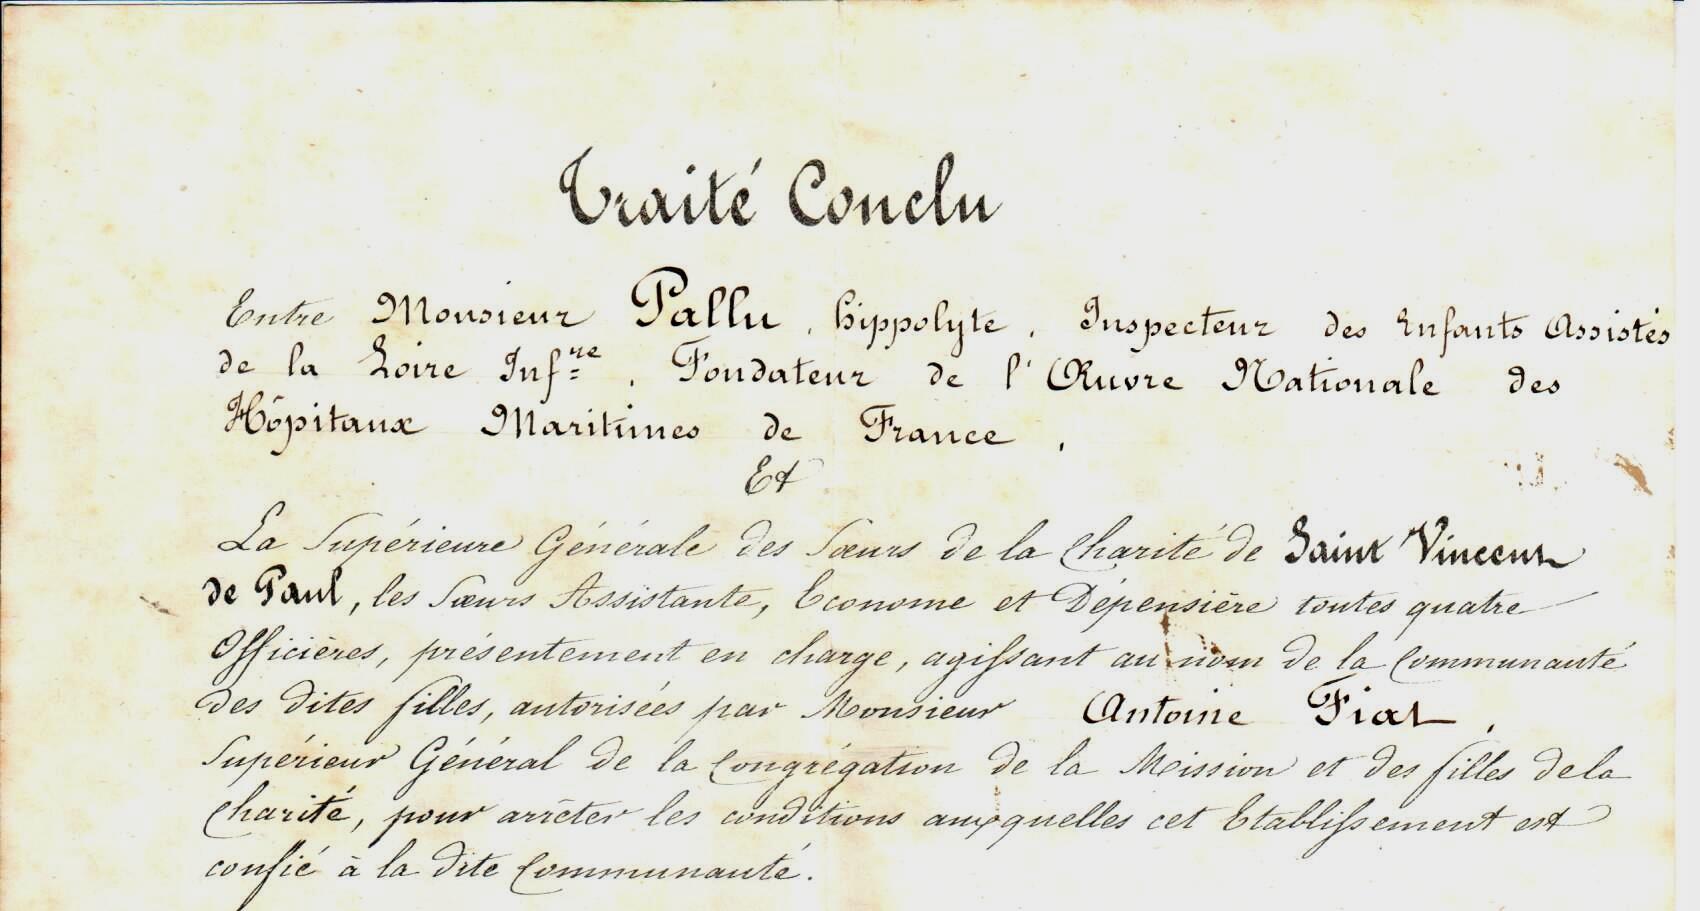 Traité Conclu
Entre Monsieur Pallu, hippolyte, Inspecteur des Enfants Assistés
de la Loire Infre, Fondateur de l'Œuvre Nationale des
Hôpitaux Maritimes de France,
Et
La Supérieure Générale des Sœurs de la Charité de Saint Vincent
de Paul, les Sœurs Assistante, Econome et Dépensière toutes quatre
Officières, présentement en charge, agissant au nom de la Communauté
des dites filles, autorisées par Monsieur Antoine Fiat,
Supérieur Général de la Congrégation de la Mission et des filles de la
Charité, pour arrêter les conditions auxquelles cet Etablissement est
confié à la dite Communauté.